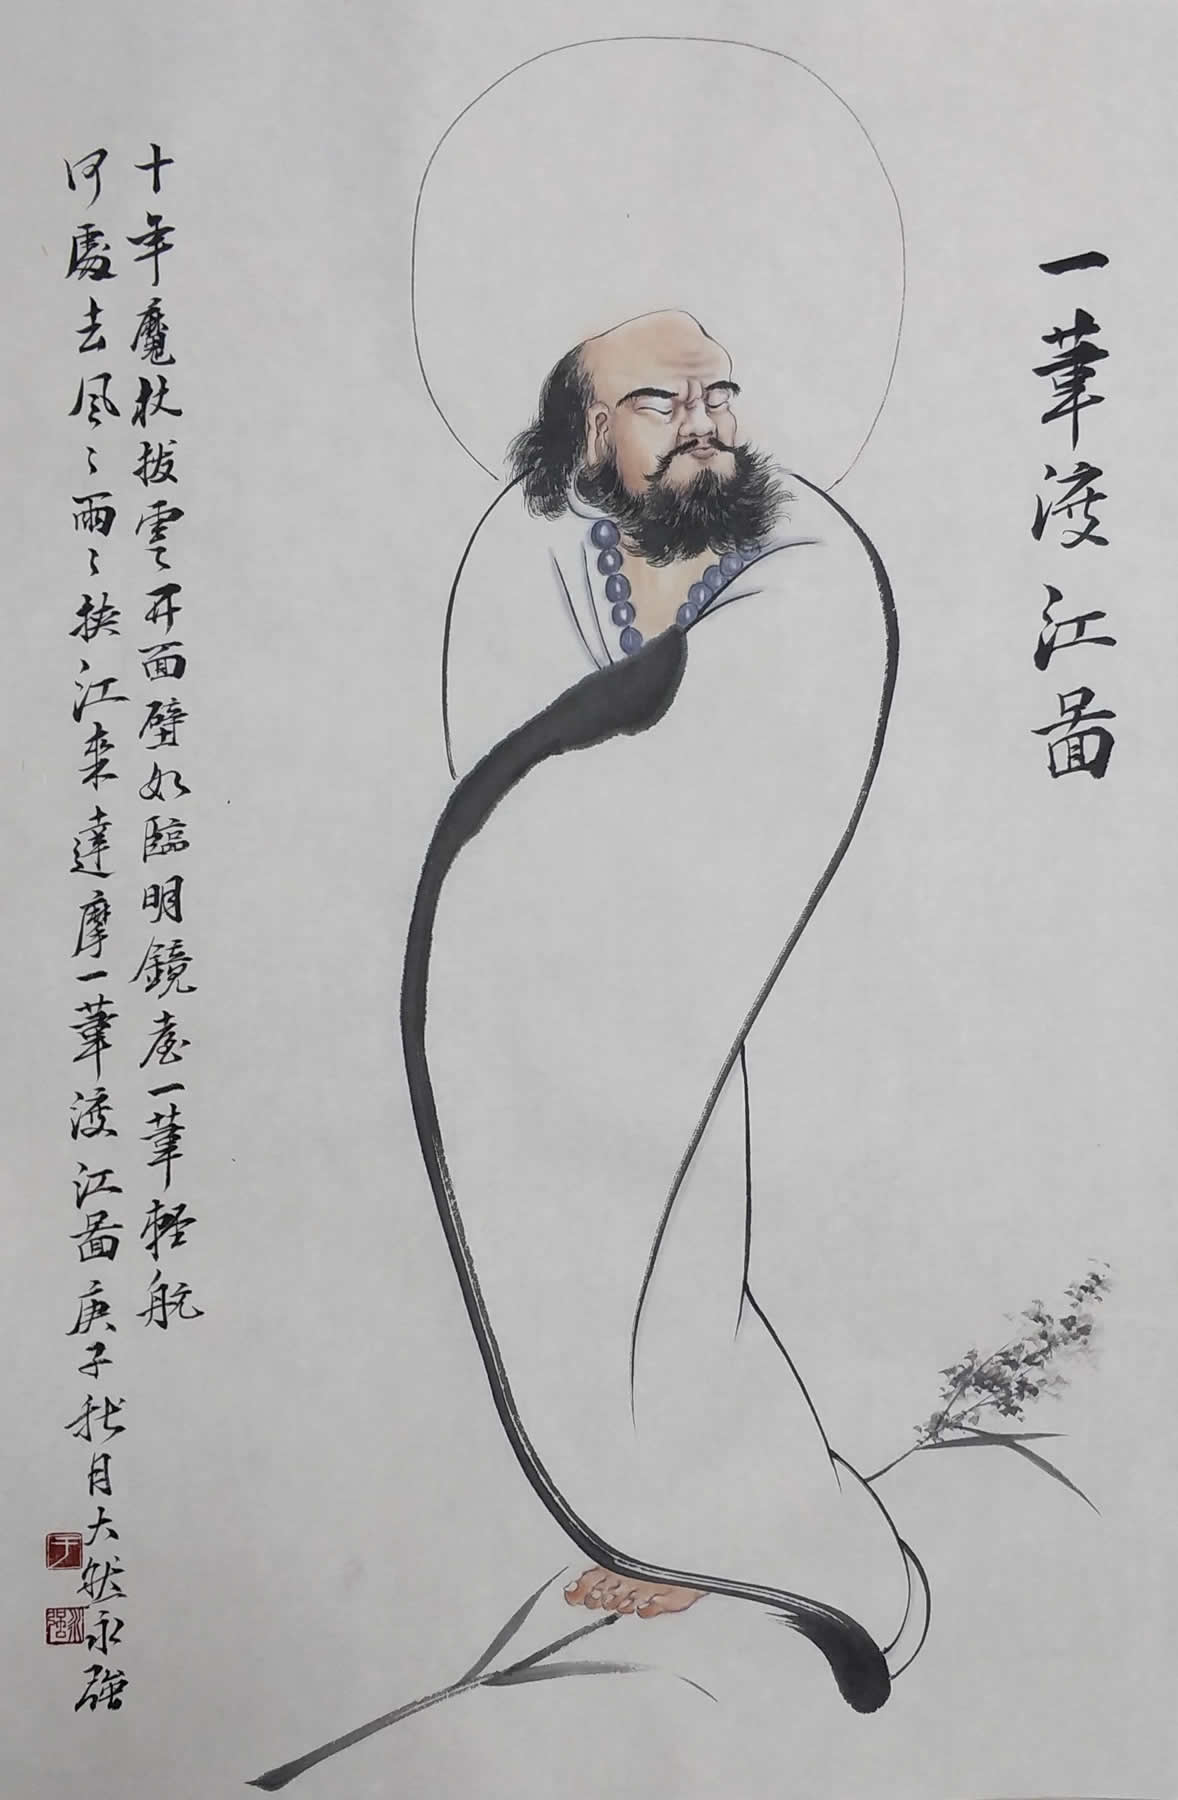 一葦渡江圖
十年魔杖拔雲開面壁如臨明鏡臺一葦輕航
何處去風〻雨〻挾江來達摩一葦渡江圖庚子秋月大然永強
于
永強